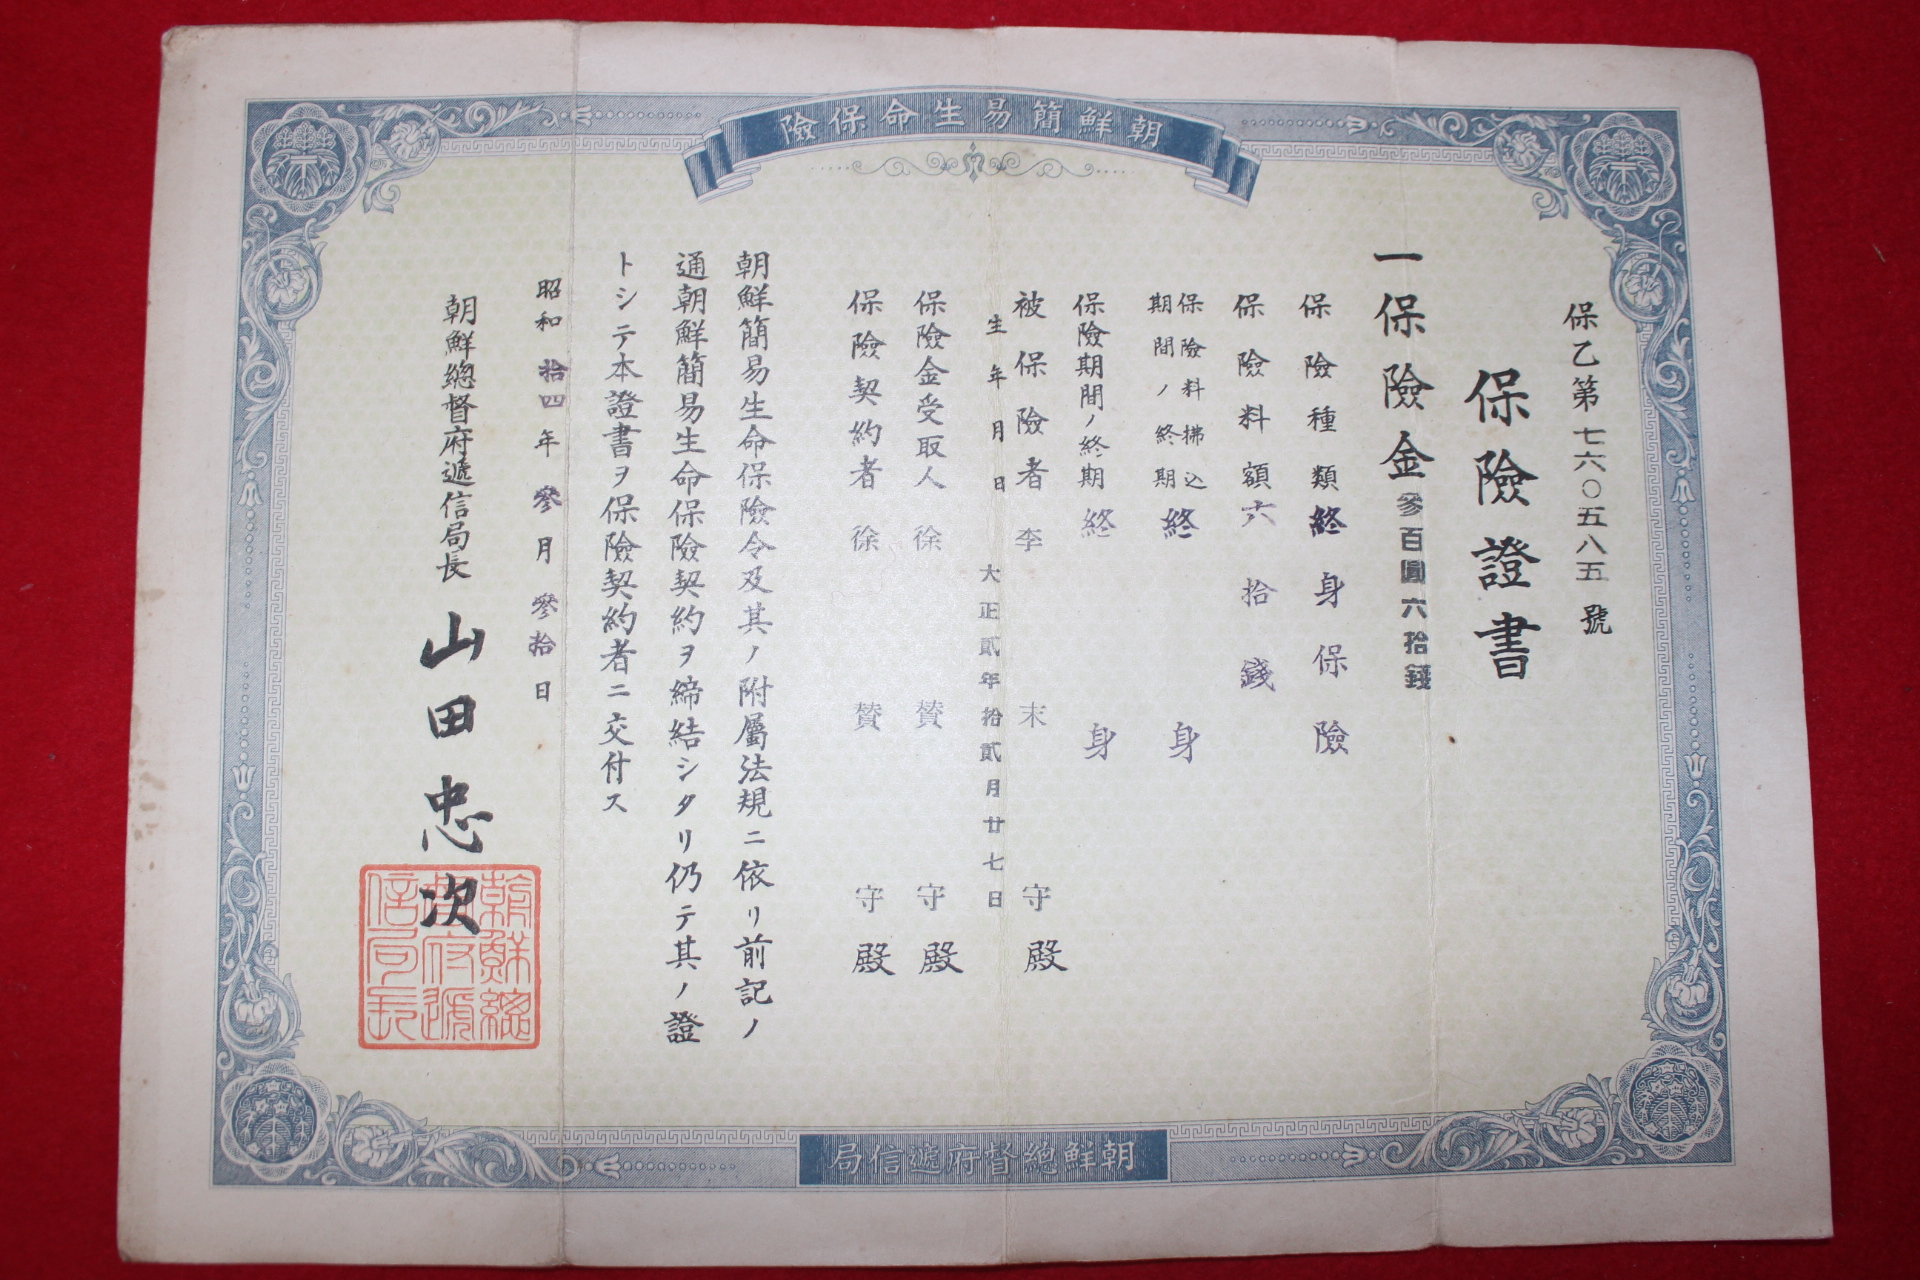 朝鮮簡易生命保險
保乙第七六〇五八五號
保險證書
一保險金參百圓六拾錢
保險種類終身保險
保險料額六拾錢
保險料拂込
期間ノ終期終身
保險期間ノ終期終身
被保險者李末守殿
生年月日大正貳年拾貳月廿七日
保險金受取人徐賛守殿
保險契約者徐賛守殿
朝鮮簡易生命保險令及其ノ附屬法規ニ依リ前記ノ
通朝鮮簡易生命保險契約ヲ締結シタリ仍テ其ノ證
トシテ本證書ヲ保險契約者ニ交付ス
昭和拾四年參月參拾日
朝鮮總督府遞信局長山田忠次
朝鮮總督府遞信局長
朝鮮總督府遞信局